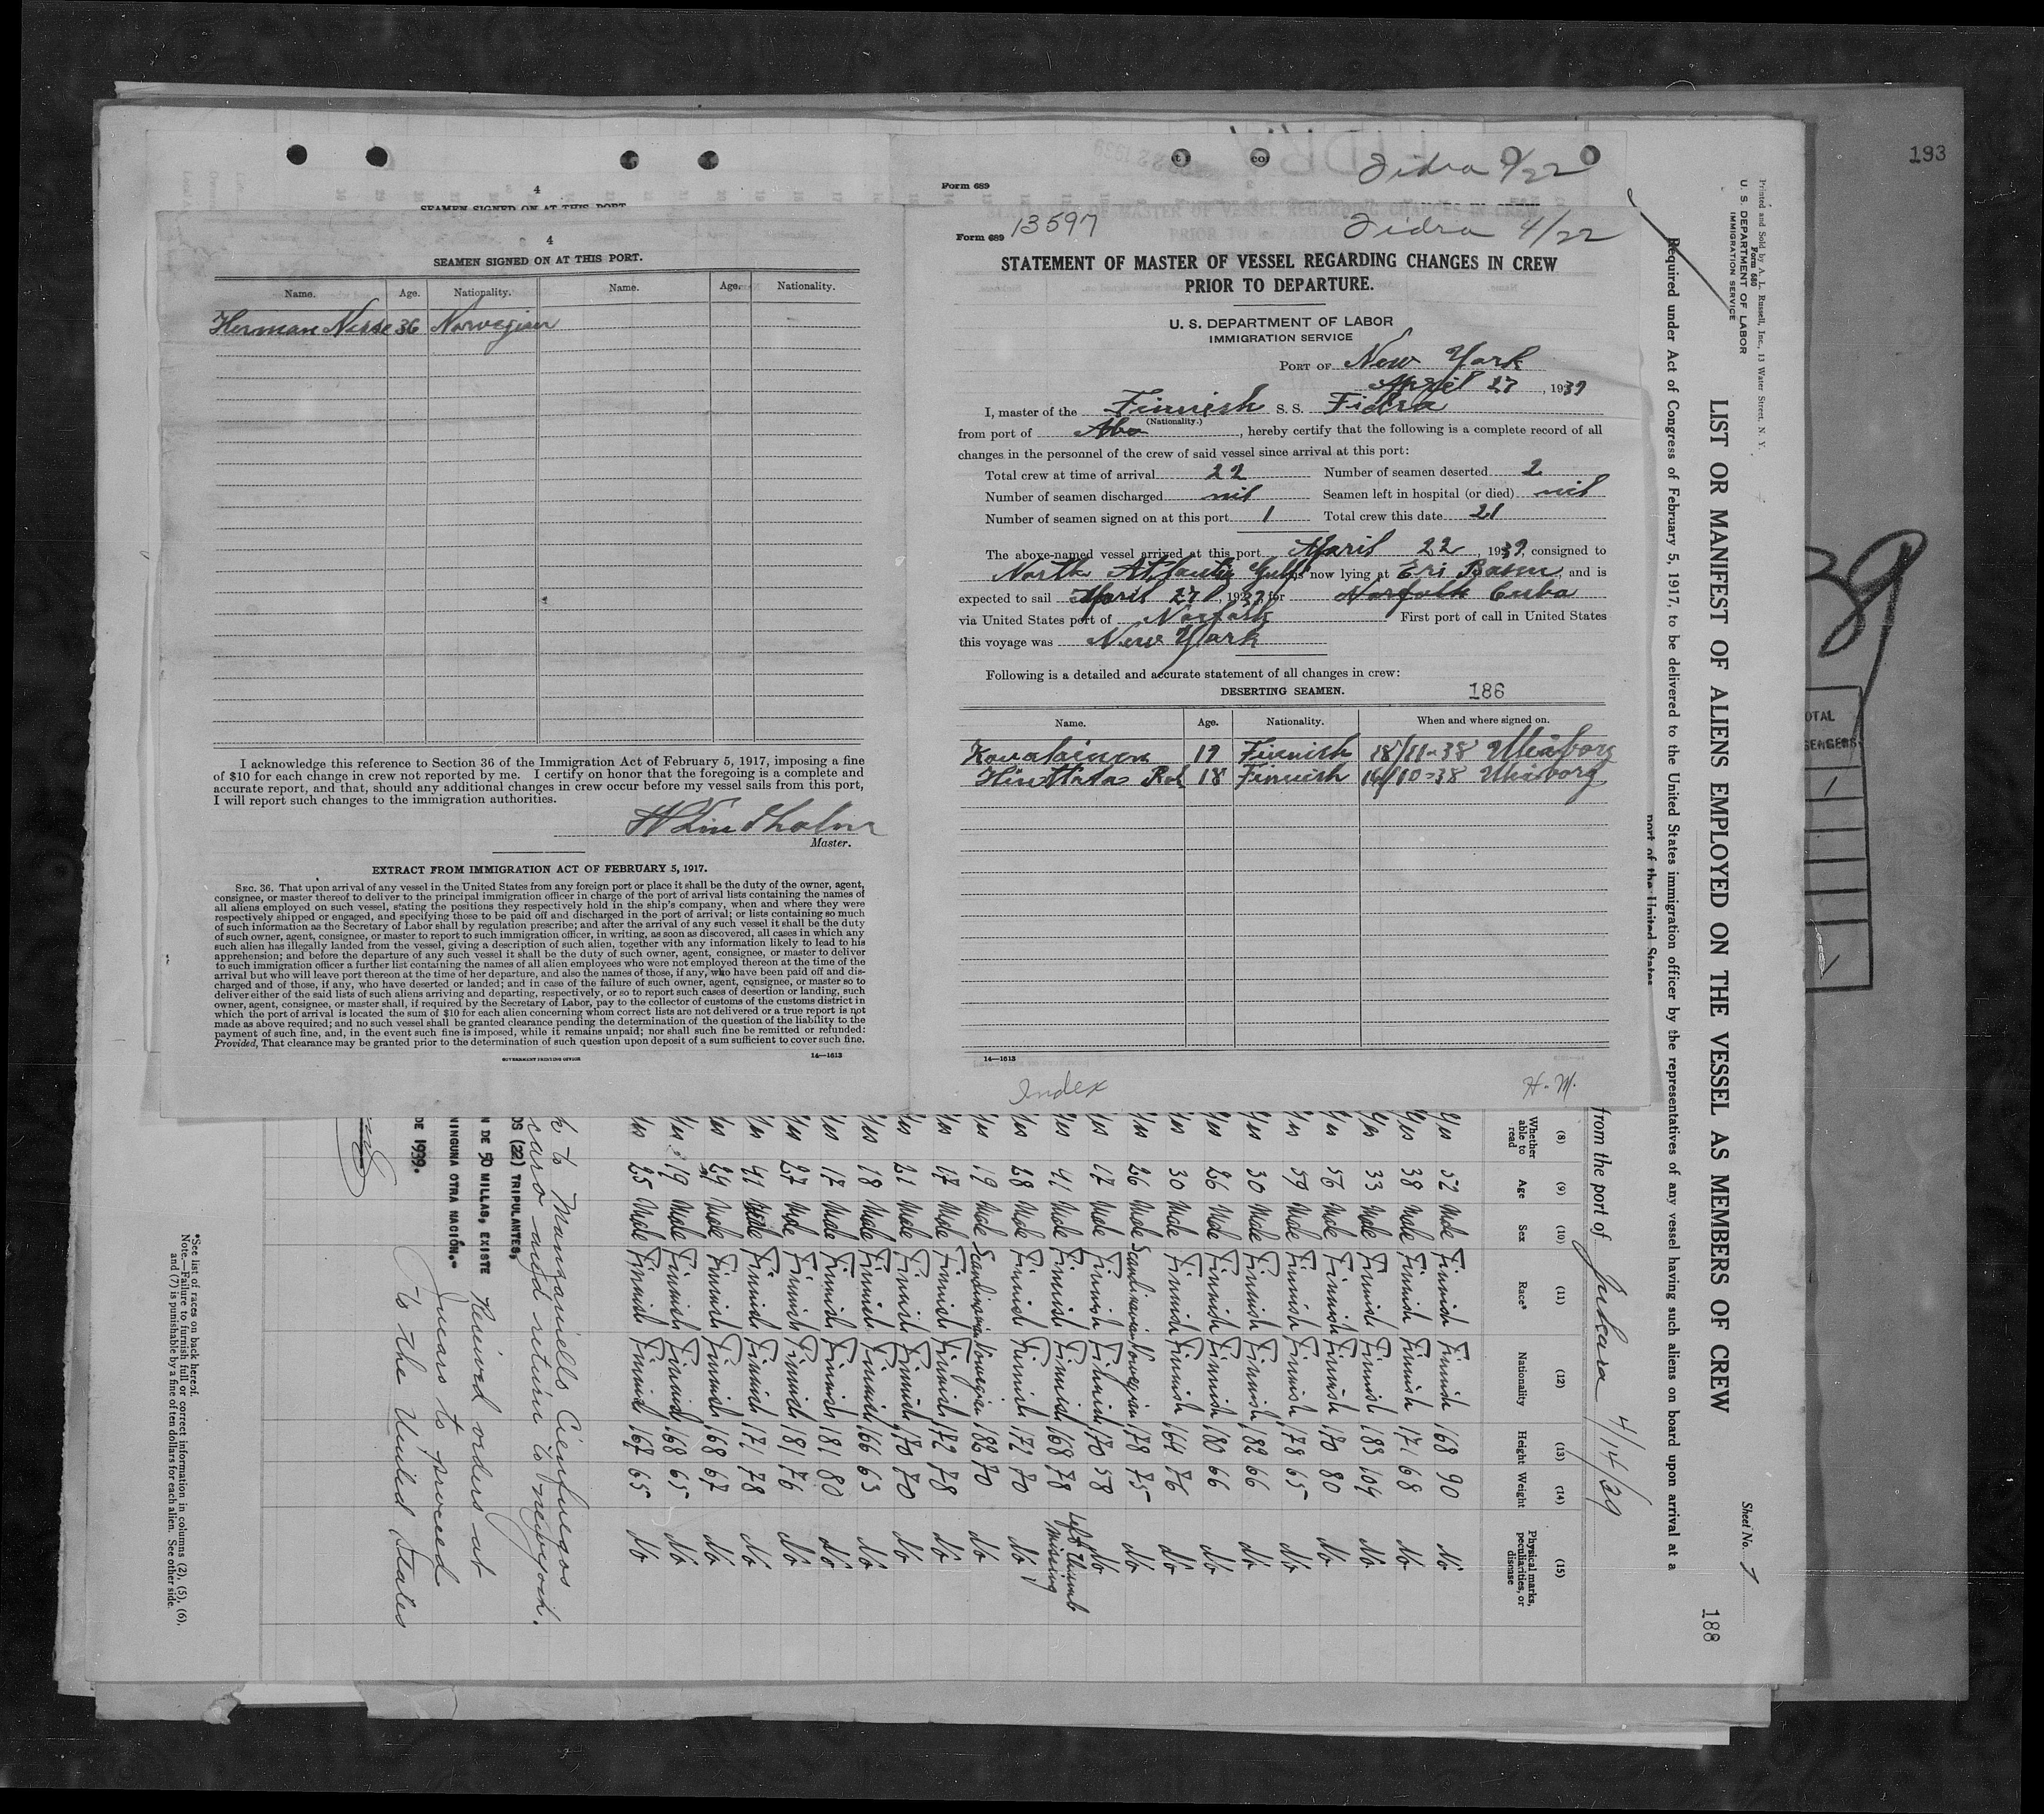 193
4
SEAMEN SIGNED ON AT THIS PORT
4
SEAMEN SIGNED ON AT THIS PORT.
Name. Age. Nationality. Name. Age. Nationality.
Herman Nesse 36 Norwegian
I acknowledge this reference to Section 36 of the Immigration Act of February 5, 1917, imposing a fine
of $10 for each change in crew not reported by me. I certify on honor that the foregoing is a complete and
accurate report, and that, should any additional changes in crew occur before my vessel sails from this port,
I will report such changes to the immigration authorities.
Master.
EXTRACT FROM IMMIGRATION ACT OF FEBRUARY 5, 1917.
SEC. 36. That upon arrival of any vessel in the United States from any foreign port or place it shall be the duty of the owner, agent,
consignee, or master thereof to deliver to the principal immigration officer in charge of the port of arrival lists containing the names of
all aliens employed on such vessel, stating the positions they respectively hold in the ship's company, when and where they were
respectively shipped or engaged, and specifying those to be paid off and discharged in the port of arrival; or lists containing so much
of such information as the Secretary of Labor shall by regulation prescribe; and after the arrival of any such vessel it shall be the duty
of such owner, agent, consignee, or master to report to such immigration officer, in writing, as soon as discovered, all cases in which any
such alien has illegally landed from the vessel, giving a description of such alien, together with any information likely to lead to his
apprehension; and before the departure of any such vessel it shall be the duty of such owner, agent, consignee, or master to deliver
to such immigration officer a further list containing the names of all alien employees who were not employed thereon at the time of the
arrival but who will leave port thereon at the time of her departure, and also the names of those, if any, who have been paid off and dis-
charged and of those, if any, who have deserted or landed; and in case of the failure of such owner, agent, consignee, or master so to
deliver either of the said lists of such aliens arriving and departing, respectively, or so to report such cases of desertion or landing, such
owner, agent, consignee, or master shall, if required by the Secretary of Labor, pay to the collector of customs of the customs district in
which the port of arrival is located the sum of $10 for each alien concerning whom correct lists are not delivered or a true report is not
made as above required; and no such vessel shall be granted clearance pending the determination of the question of the liability to the
payment of such fine, and, in the event such fine is imposed, while it remains unpaid; nor shall such fine be remitted or refunded:
Provided, That clearance may be granted prior to the determination of such question upon deposit of a sum sufficient to cover such fine.
GOVERNMENT PRINTING OFFICE 14—1613
Form 689 Fidra 4/22
Form 689 13597 Fidra 4/22
STATEMENT OF MASTER OF VESSEL REGARDING CHANGES IN CREW
PRIOR TO DEPARTURE.
U. S. DEPARTMENT OF LABOR
IMMIGRATION SERVICE
PORT OF New York
April 27, 1939
I, master of the Finnish S. S. Fidra
(Nationality.)
from port of Abo, hereby certify that the following is a complete record of all
changes in the personnel of the crew of said vessel since arrival at this port:
Total crew at time of arrival 22 Number of seamen deserted 2
Number of seamen discharged nil Seamen left in hospital (or died) nil
Number of seamen signed on at this port 1 Total crew this date 21
The above-named vessel arrived at this port April 22, 1939, consigned to
North Atlantic Gulf is now lying at Eri Basin, and is
expected to sail April 27, 1939, for Norfolk Cuba
via United States port of Norfolk First port of call in United States
this voyage was New York
Following is a detailed and accurate statement of all changes in crew:
DESERTING SEAMEN. 186
Name. Age. Nationality. When and where signed on.
Kovalainen 19 Finnish 18/11-38 Uleåborg
18 Finnish 14/10-38 Uleåborg
14—1613
Index H. M.
39
TOTAL
Printed and Sold by A. L. Russell, Inc., 13 Water Street, N. Y.
Form 680
U. S. DEPARTMENT OF LABOR
IMMIGRATION SERVICE
Sheet No. 1
188
LIST OR MANIFEST OF ALIENS EMPLOYED ON THE VESSEL AS MEMBERS OF CREW
Required under Act of Congress of February 5, 1917, to be delivered to the United States immigration officer by the representatives of any vessel having such aliens on board upon arrival at a
port of the United States
from the port of Jucaro 4/14/39
(8) (9) (10) (11) (12) (13) (14) (15)
Whether able to read Age Sex Race* Nationality Height Weight Physical marks, peculiarities, or disease
Yes 52 Male Finnish Finnish 168 90 No
Yes 38 Male Finnish Finnish 171 68 No
Yes 33 Male Finnish Finnish 183 104 No
Yes 56 Male Finnish Finnish 170 80 No
Yes 59 Male Finnish Finnish 178 65 No
Yes 30 Male Finnish Finnish 182 66 No
Yes 26 Male Finnish Finnish 180 66 No
Yes 30 Male Finnish Finnish 164 76 No
Yes 26 Male Scandinavian Norwegian 178 75 No
Yes 17 Male Finnish Finnish 170 58 No
Yes 41 Male Finnish Finnish 168 78 left thumb missing
Yes 28 Male Finnish Finnish 172 70 No
Yes 19 Male Scandinavian Norwegian 182 70 No
Yes 17 Male Finnish Finnish 172 78 No
Yes 21 Male Finnish Finnish 170 70 No
Yes 18 Male Finnish Finnish 166 63 No
Yes 17 Male Finnish Finnish 181 80 No
Yes 27 Male Finnish Finnish 181 76 No
Yes 41 Male Finnish Finnish 171 78 No
Yes 24 Male Finnish Finnish 168 67 No
Yes 19 Male Finnish Finnish 168 65 No
Yes 25 Male Finnish Finnish 167 65 No
to Manzanello Cienfuegos
caro and return to Newyork.
OS (22) TRIPULANTES,
N DE 50 MILLAS, EXISTE
NINGUNA OTRA NACIÓN."
DE 1939.
Received orders at
Jucaro to proceed
to the United States
*See list of races on back hereof.
Note.—Failure to furnish full or correct information in columns (2), (5), (6),
and (7) is punishable by a fine of ten dollars for each alien. See other side.